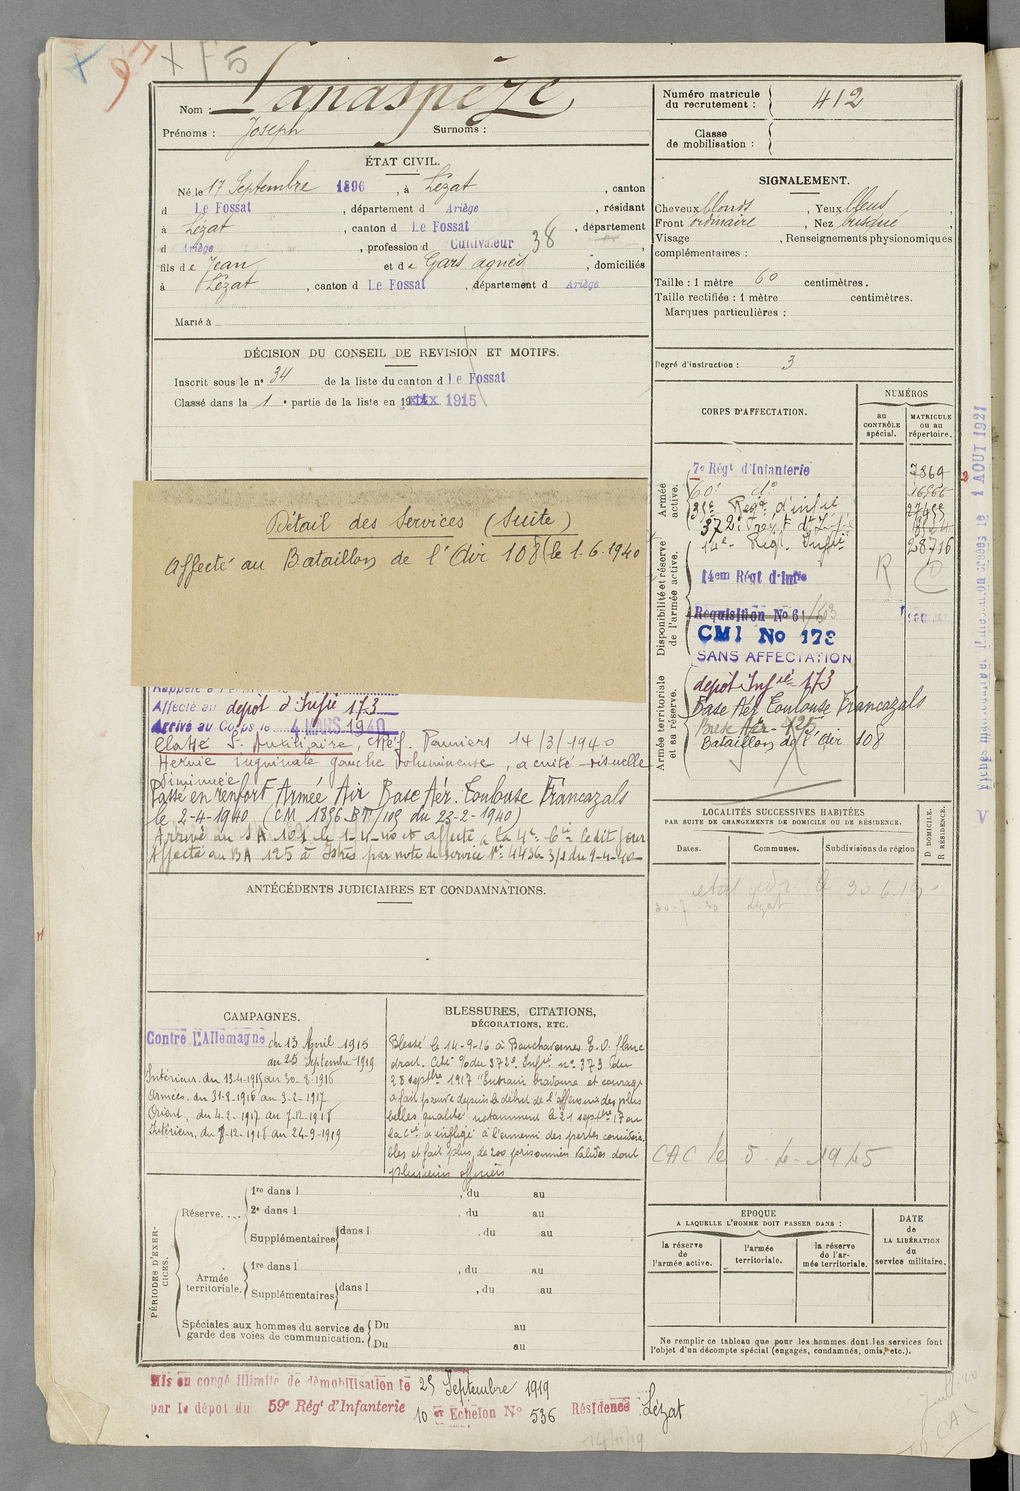 97 + F5
Nom : Lanaspèze
Prénoms : Joseph Surnoms :
Numéro matricule du recrutement : 412
Classe de mobilisation :
ÉTAT CIVIL.
Né le 17 Septembre 1896, à Lézat, canton
d Le Fossat, département d Ariège, résidant
à Lézat, canton d Le Fossat, département
d Ariège, profession d Cultivateur 38
fils de Jean et de Gars agnès, domiciliés
à Lézat, canton d Le Fossat, département d Ariège
Marié à
SIGNALEMENT.
Cheveux blonds, Yeux bleus,
Front ordinaire, Nez busqué,
Visage , Renseignements physionomiques
complémentaires :
Taille : 1 mètre 60 centimètres.
Taille rectifiée : 1 mètre centimètres.
Marques particulières :
Degré d'instruction : 3
DÉCISION DU CONSEIL DE REVISION ET MOTIFS.
Inscrit sous le n° 34 de la liste du canton d Le Fossat
Classé dans la 1e partie de la liste en 19 1915
Détail des Services (Suite)
Affecté au Bataillon de l'Air 108 le 1.6.1940
Affecté au dépôt d'Infrie 173
Arrivé au Corps le 4 MARS 1940
Classé S. Auxiliaire, Pamiers 14/3/1940
Hernie inguinale gauche volumineuse, acuité visuelle
diminuée
Passé en renfort Armée Air Base Aér. Toulouse Francazals
le 2-4-1940 (CM 1396-BT/109 du 23-2-1940)
Arrivé au BA 101 le 1-4-40 et affecté à la 4e Cie Ledit jour
Affecté au BA 125 à Istres par note de service N° 4436 3/1 du 9-4-40
CORPS D'AFFECTATION.
NUMÉROS
au CONTRÔLE spécial.
MATRICULE ou au répertoire.
Armée active.
7e Régt d'Infanterie 7869
60e do
372e Regt d'Infie
14e Regt Infie 28716
Disponibilité et réserve de l'armée active.
14em Régt d'Infie R
Requisition No 61
CMI No 178
SANS AFFECTATION
Armée territoriale et sa réserve.
dépot Infie 173
Base Aér Toulouse Francazals
Base Aér. 125
Bataillon de l'Air 108
1 AOUT 1921
LOCALITÉS SUCCESSIVES HABITÉES
PAR SUITE DE CHANGEMENTS DE DOMICILE OU DE RÉSIDENCE.
D DOMICILE.
R RÉSIDENCE.
Dates. Communes. Subdivisions de région
Lézat
CAC le 5-4-1945
ANTÉCÉDENTS JUDICIAIRES ET CONDAMNATIONS.
CAMPAGNES.
Contre L'Allemagne du 13 Avril 1915
au 25 Septembre 1919
Intérieur du 13-4-1915 au 30-8-1916
Armées du 31-8-1916 au 3-2-1917
Orient, du 4-2-1917 au 7-12-1918
Intérieur, du 8-12-1918 au 24-9-1919
BLESSURES, CITATIONS,
DÉCORATIONS, ETC.
Blessé le 14-9-16 à Bouchavesnes E.O. flanc
droit. Cité O/ du 372e Infie n° 373 du
28 septbre 1917 "Entrain bravoure et courage
a fait preuve depuis le début de l'offensive des plus
belles qualités notamment le 21 septbre 17 où
la Cie a infligé à l'ennemi des pertes considéra
bles et fait plus de 200 prisonniers valides dont
plusieurs officiers
PÉRIODES D'EXERCICES.
Réserve....
1re dans l , du au
2e dans l , du au
Supplémentaires dans l , du au
Armée territoriale.
1re dans l , du au
Supplémentaires dans l , du au
Spéciales aux hommes du service de garde des voies de communication.
Du au
Du au
EPOQUE
A LAQUELLE L'HOMME DOIT PASSER DANS :
la réserve de l'armée active.
l'armée territoriale.
la réserve de l'armée territoriale.
DATE de LA LIBÉRATION du service militaire.
Ne remplir ce tableau que pour les hommes dont les services font
l'objet d'un décompte spécial (engagés, condamnés, omis, etc.).
Mis en congé illimité de démobilisation le 25 Septembre 1919
par le dépôt du 59e Régt d'Infanterie 10 Echelon N° 536 Résidence Lézat